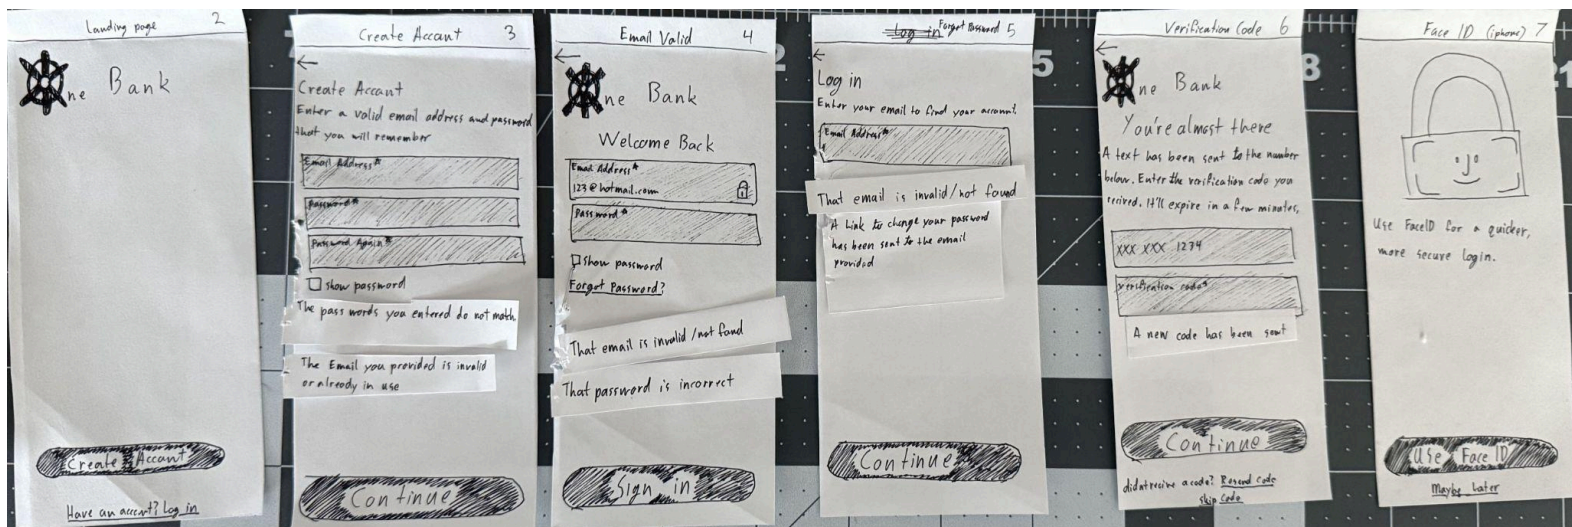 Landing page 2
ne Bank
Create Accant
Have an accent? Log in
Create Accant 3
←
Create Accant
Enter a valid email address and password
that you will remember
Email Address*
Password*
Password Again*
Show password
The pass words you entered do not math.
The Email you provided is invalid
or already in use
Continue
Email Valid 4
←
ne Bank
Welcome Back
Email Address*
123@hotmail.com
Password*
Show password
Forgot Password?
That email is invalid/not fand
That password is incorrect
Sign in
Log in Forgot Password 5
←
Log in
Enter your email to find your account.
Email Address*
That email is invalid/not found
A Link to change your password
has been sent to the email
provided
Continue
Verification Code 6
←
ne Bank
You're almost there
A text has been sent to the number
below. Enter the verification code you
recived. It'll expire in a few minutes.
XXX XXX 1234
verification code*
A new code has been sent
Continue
didnt recive a code? Resend code
skip code
Face ID (iphone) 7
Use FaceID for a quicker,
more secure login.
Use Face ID
Maybe Later
5
8
21